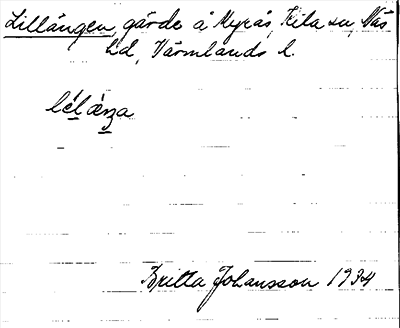 Lillängen, gärde å Myrås, Kila sn, Näs
hd, Värmlands l.
Britta Johansson 1934